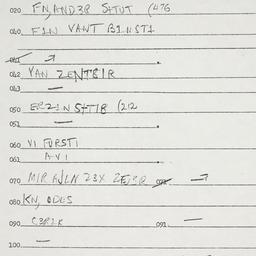 020 FN,AND3R SHTUT (476
040 FIN VANT BINSTI
041
042 VAN ZENTBIR
043 —
050 ERZIN SHTIB (212
051 —
060 VI FURSTI
061 AVI
070 MIR 23X
080 KN, ODES
090 C3RIK 091 —
100 —